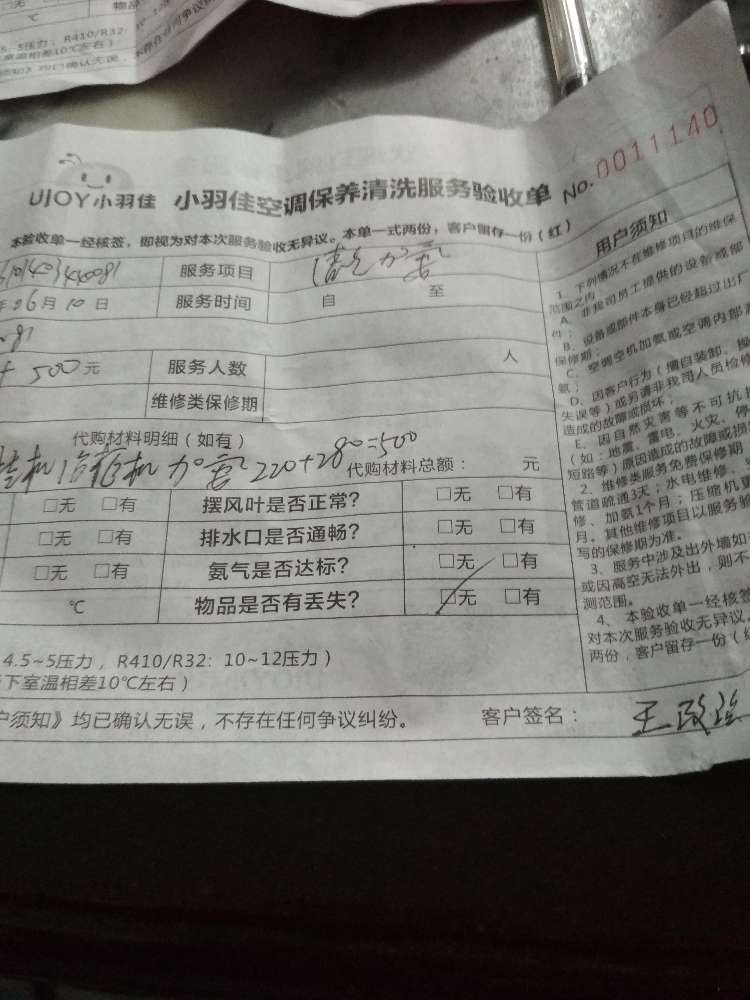 无 □有
物品
5~5压力，R410/R32:
室温相差10℃左右）
须知》均已确认无误，不存在任何争议
No.0011140
UJOY小羽佳 小羽佳空调保养清洗服务验收单
本验收单一经核签，即视为对本次服务验收无异议。本单一式两份，客户留存一份（红）
服务项目 清洗加氨
年 06月10日 服务时间 自 至
500元 服务人数 人
维修类保修期
代购材料明细（如有）
加氨 220+280=500 代购材料总额： 元
□无 □有 摆风叶是否正常？ □无 □有
□无 □有 排水口是否通畅？ □无 □有
□无 □有 氨气是否达标？ □无 □有
℃ 物品是否有丢失？ □无 □有
4.5~5压力，R410/R32：10~12压力）
下室温相差10℃左右）
户须知》均已确认无误，不存在任何争议纠纷。 客户签名：
用户须知
1、下列情况不在维修项目的维保
范围之内
A、非我司员工提供的设备或部
件；
B、设备或部件本身已经超过出厂
保修期；
C、空调空机加氨或空调内部
氨；
D、因客户行为（擅自装卸、操
失误等）或另请非我司人员检修
造成的故障或损坏；
E、因自然灾害等不可抗
（如：地震、雷电、火灾、停
短路等）原因造成的故障或损
2、维修类服务免费保修期
管道疏通3天；水电维修、
修、加氨1个月；压缩机更
月。其他维修项目以服务验
写的保修期为准。
3、服务中涉及出外墙如
或因高空无法外出，则不
测范围。
4、本验收单一经核签
对本次服务验收无异议。
两份，客户留存一份（红